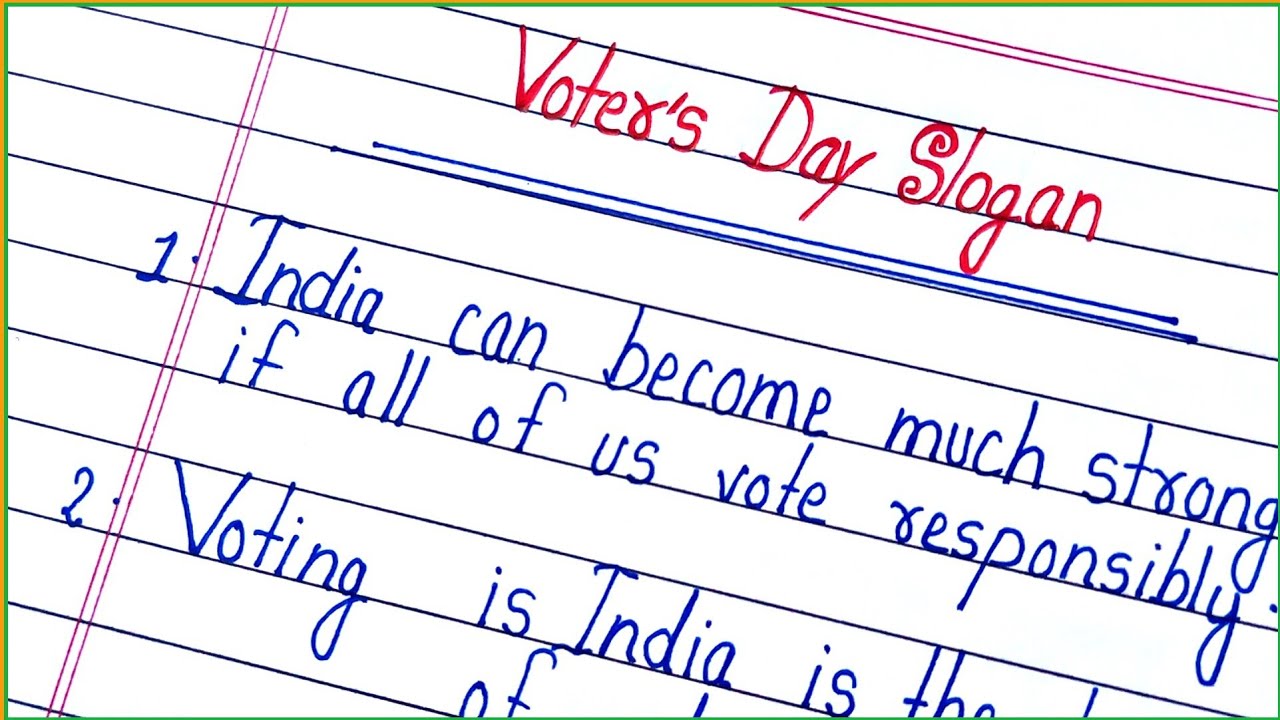 Voter's Day Slogan
1. India can become much strong
if all of us vote responsibly.
2. Voting is India is the
of